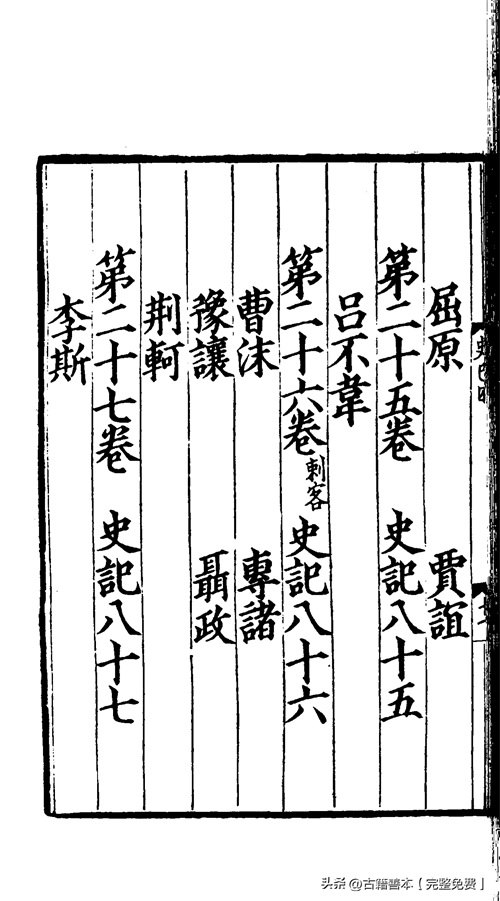 屈原 賈誼
第二十五卷 史記八十五
呂不韋
第二十六卷 刺客 史記八十六
曹沫 專諸
豫讓 聶政
荆軻
第二十七卷 史記八十七
李斯
头条 @古籍善本【完整免费】